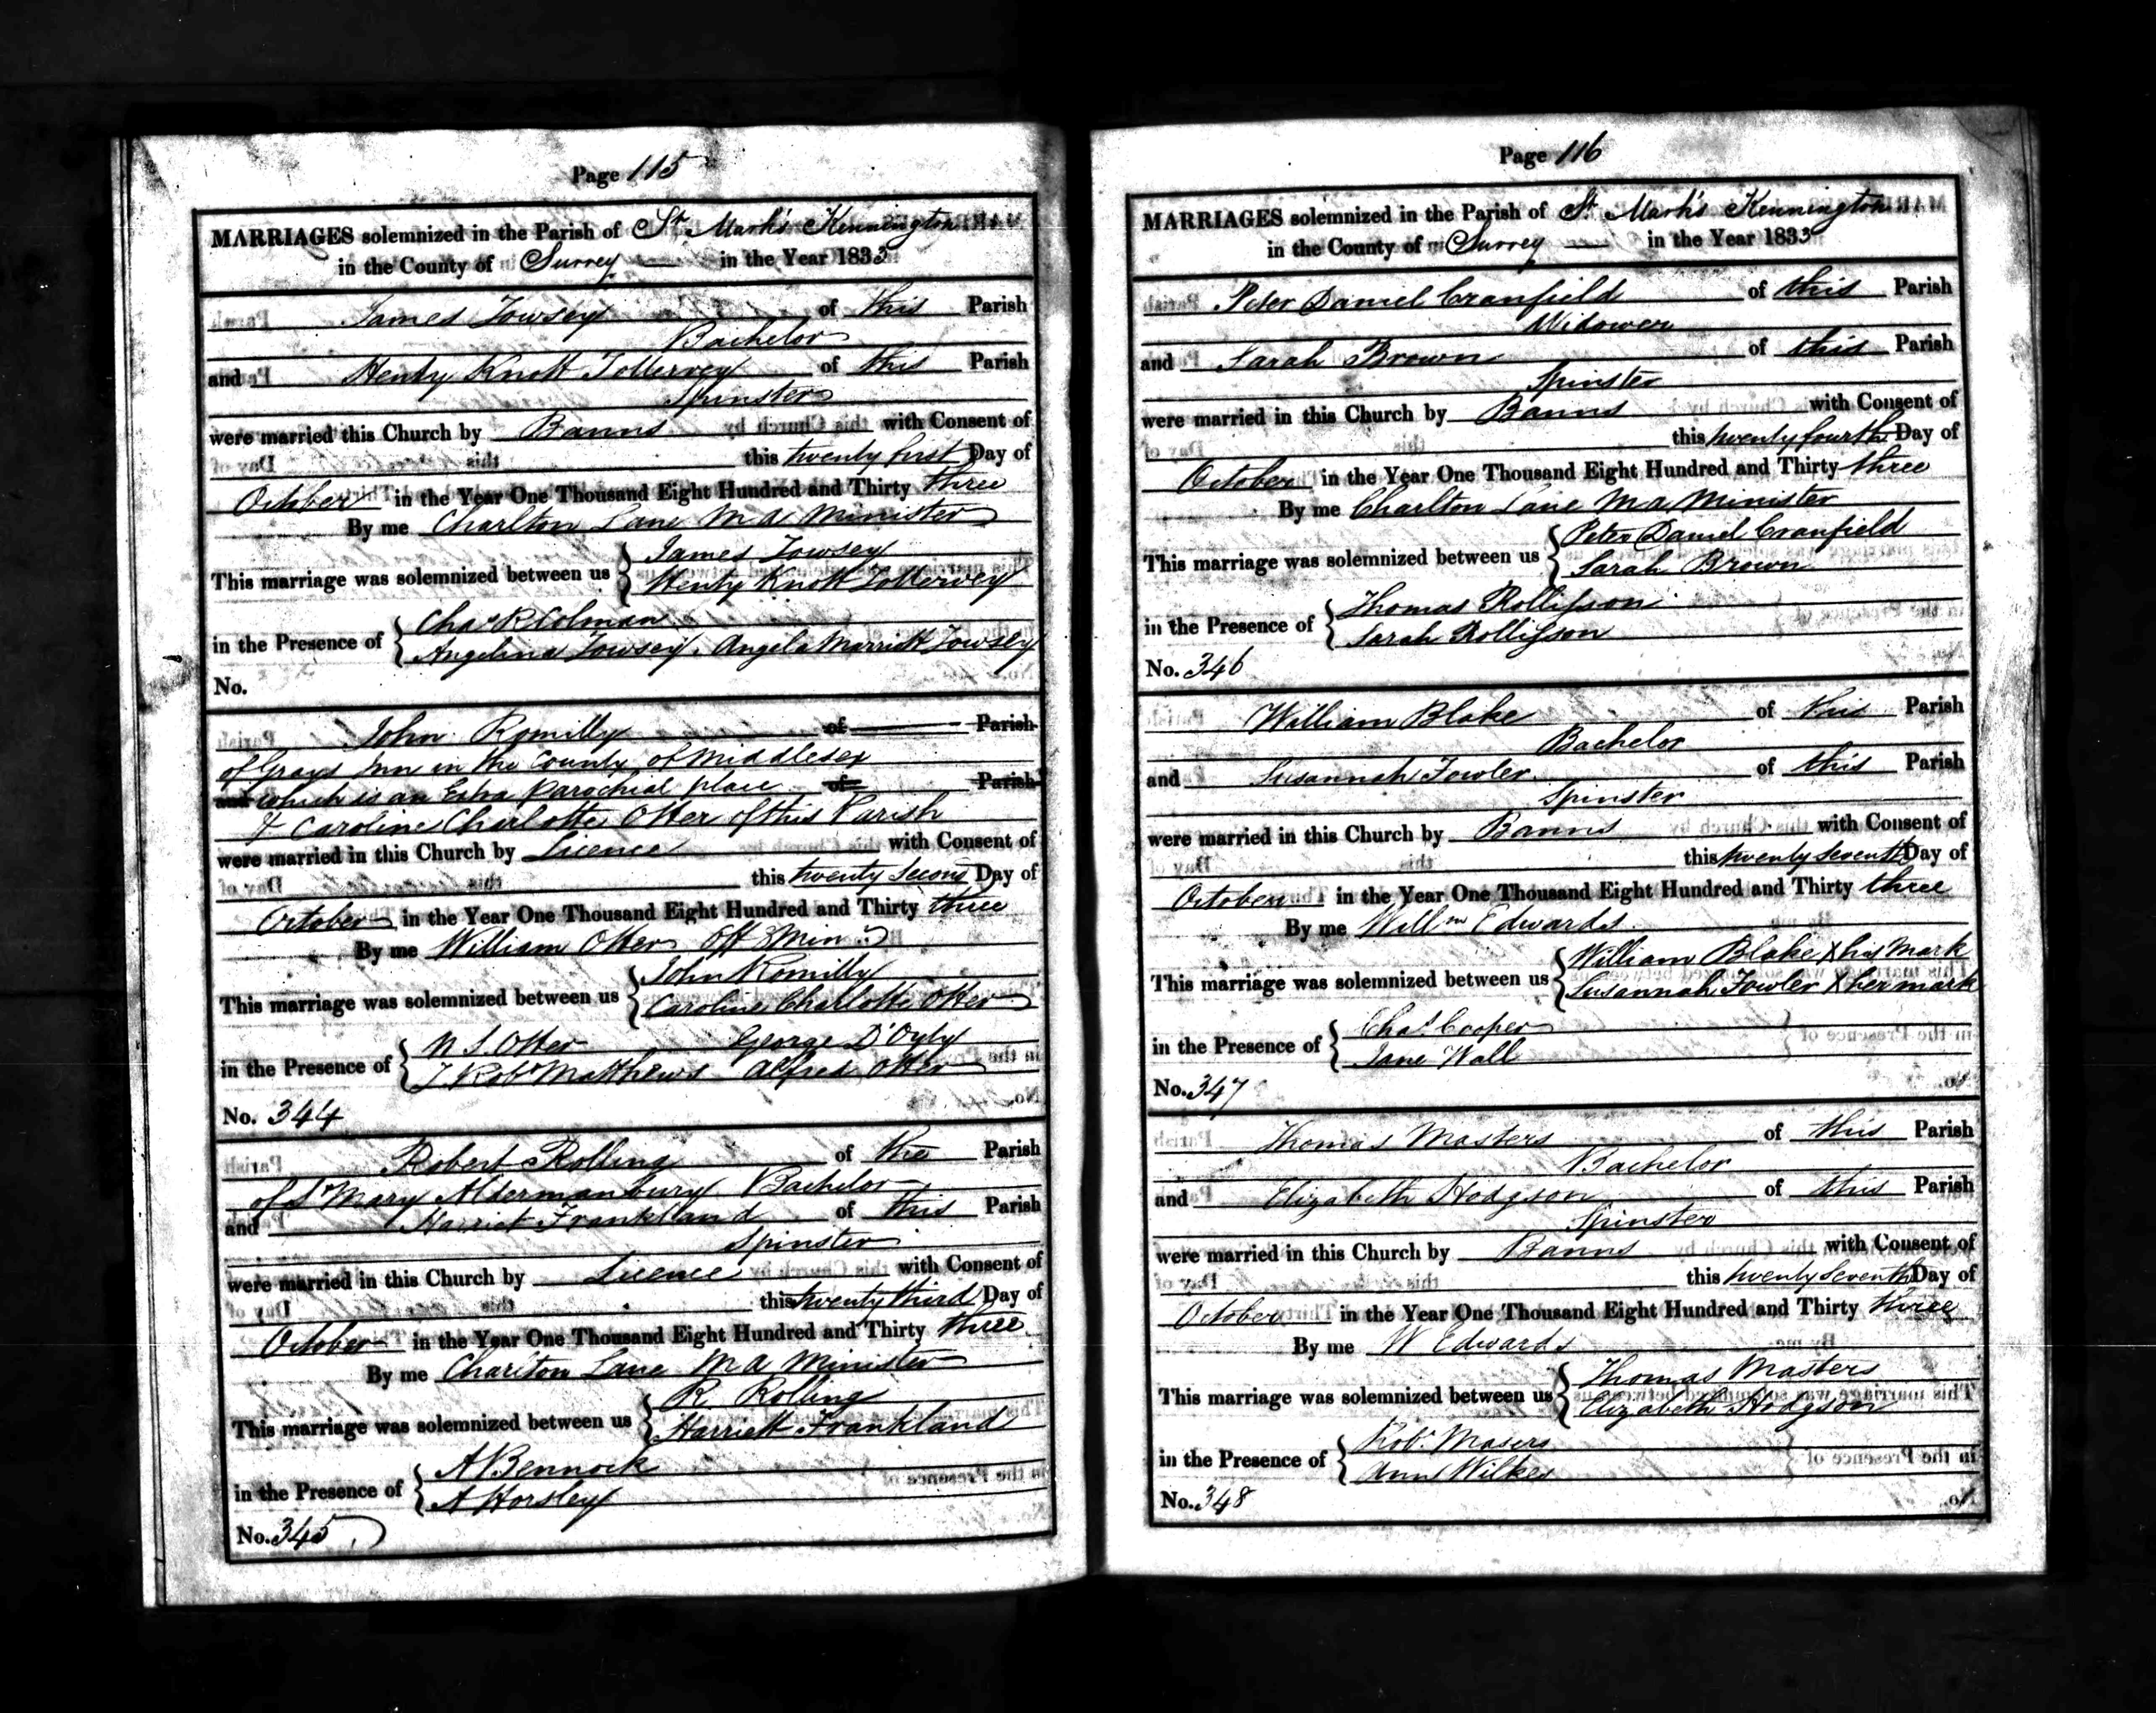 Page 115
MARRIAGES solemnized in the Parish of St. Mark's Kennington
in the County of Surrey in the Year 1833
James Towsey of this Parish
Bachelor
and Henty Knott Tollervey of this Parish
Spinster
were married this Church by Banns with Consent of
this twenty first Day of
October in the Year One Thousand Eight Hundred and Thirty three
By me Charlton Lane M A Minister
This marriage was solemnized between us { James Towsey
Henty Knott Tollervey
in the Presence of { Chas R Colman
Angelina Towsey. Angela Marriott Towsey
No.
John Romilly of Parish
of Grays Inn in the County of Middlesex
and which is an Extra Parochial place of Parish
& Caroline Charlotte Otter of this Parish
were married in this Church by Licence with Consent of
this twenty second Day of
October in the Year One Thousand Eight Hundred and Thirty three
By me William Otter Off Min
This marriage was solemnized between us { John Romilly
Caroline Charlotte Otter
in the Presence of { N S. Otter George D'Oyly
J. Robt Matthews Alfred Otter
No. 344
Robert Rolling of the Parish
of St Mary Aldermanbury Bachelor
and Harriet Frankland of this Parish
Spinster
were married in this Church by Licence with Consent of
this twenty third Day of
October in the Year One Thousand Eight Hundred and Thirty three
By me Charlton Lane M A Minister
This marriage was solemnized between us { R Rolling
Harriett Frankland
in the Presence of { A Bennock
A Horsley
No. 345
Page 116
MARRIAGES solemnized in the Parish of St Mark's Kennington
in the County of Surrey in the Year 1833
Peter Daniel Cranfield of this Parish
Widower
and Sarah Brown of this Parish
Spinster
were married in this Church by Banns with Consent of
this twenty fourth Day of
October in the Year One Thousand Eight Hundred and Thirty three
By me Charlton Lane M A Minister
This marriage was solemnized between us { Peter Daniel Cranfield
Sarah Brown
in the Presence of { Thomas Rollisson
Sarah Rollisson
No. 346
William Blake of this Parish
Bachelor
and Susannah Fowler of this Parish
Spinster
were married in this Church by Banns with Consent of
this twenty seventh Day of
October in the Year One Thousand Eight Hundred and Thirty three
By me Willm Edwards
This marriage was solemnized between us { William Blake X his Mark
Susannah Fowler X her mark
in the Presence of { Chas Cooper
Jane Wall
No. 347
Thomas Masters of this Parish
Bachelor
and Elizabeth Hodgson of this Parish
Spinster
were married in this Church by Banns with Consent of
this twenty seventh Day of
October in the Year One Thousand Eight Hundred and Thirty three
By me W Edwards
This marriage was solemnized between us { Thomas Masters
Elizabeth Hodgson
in the Presence of { Robt Masers
Ann Wilkes
No. 348